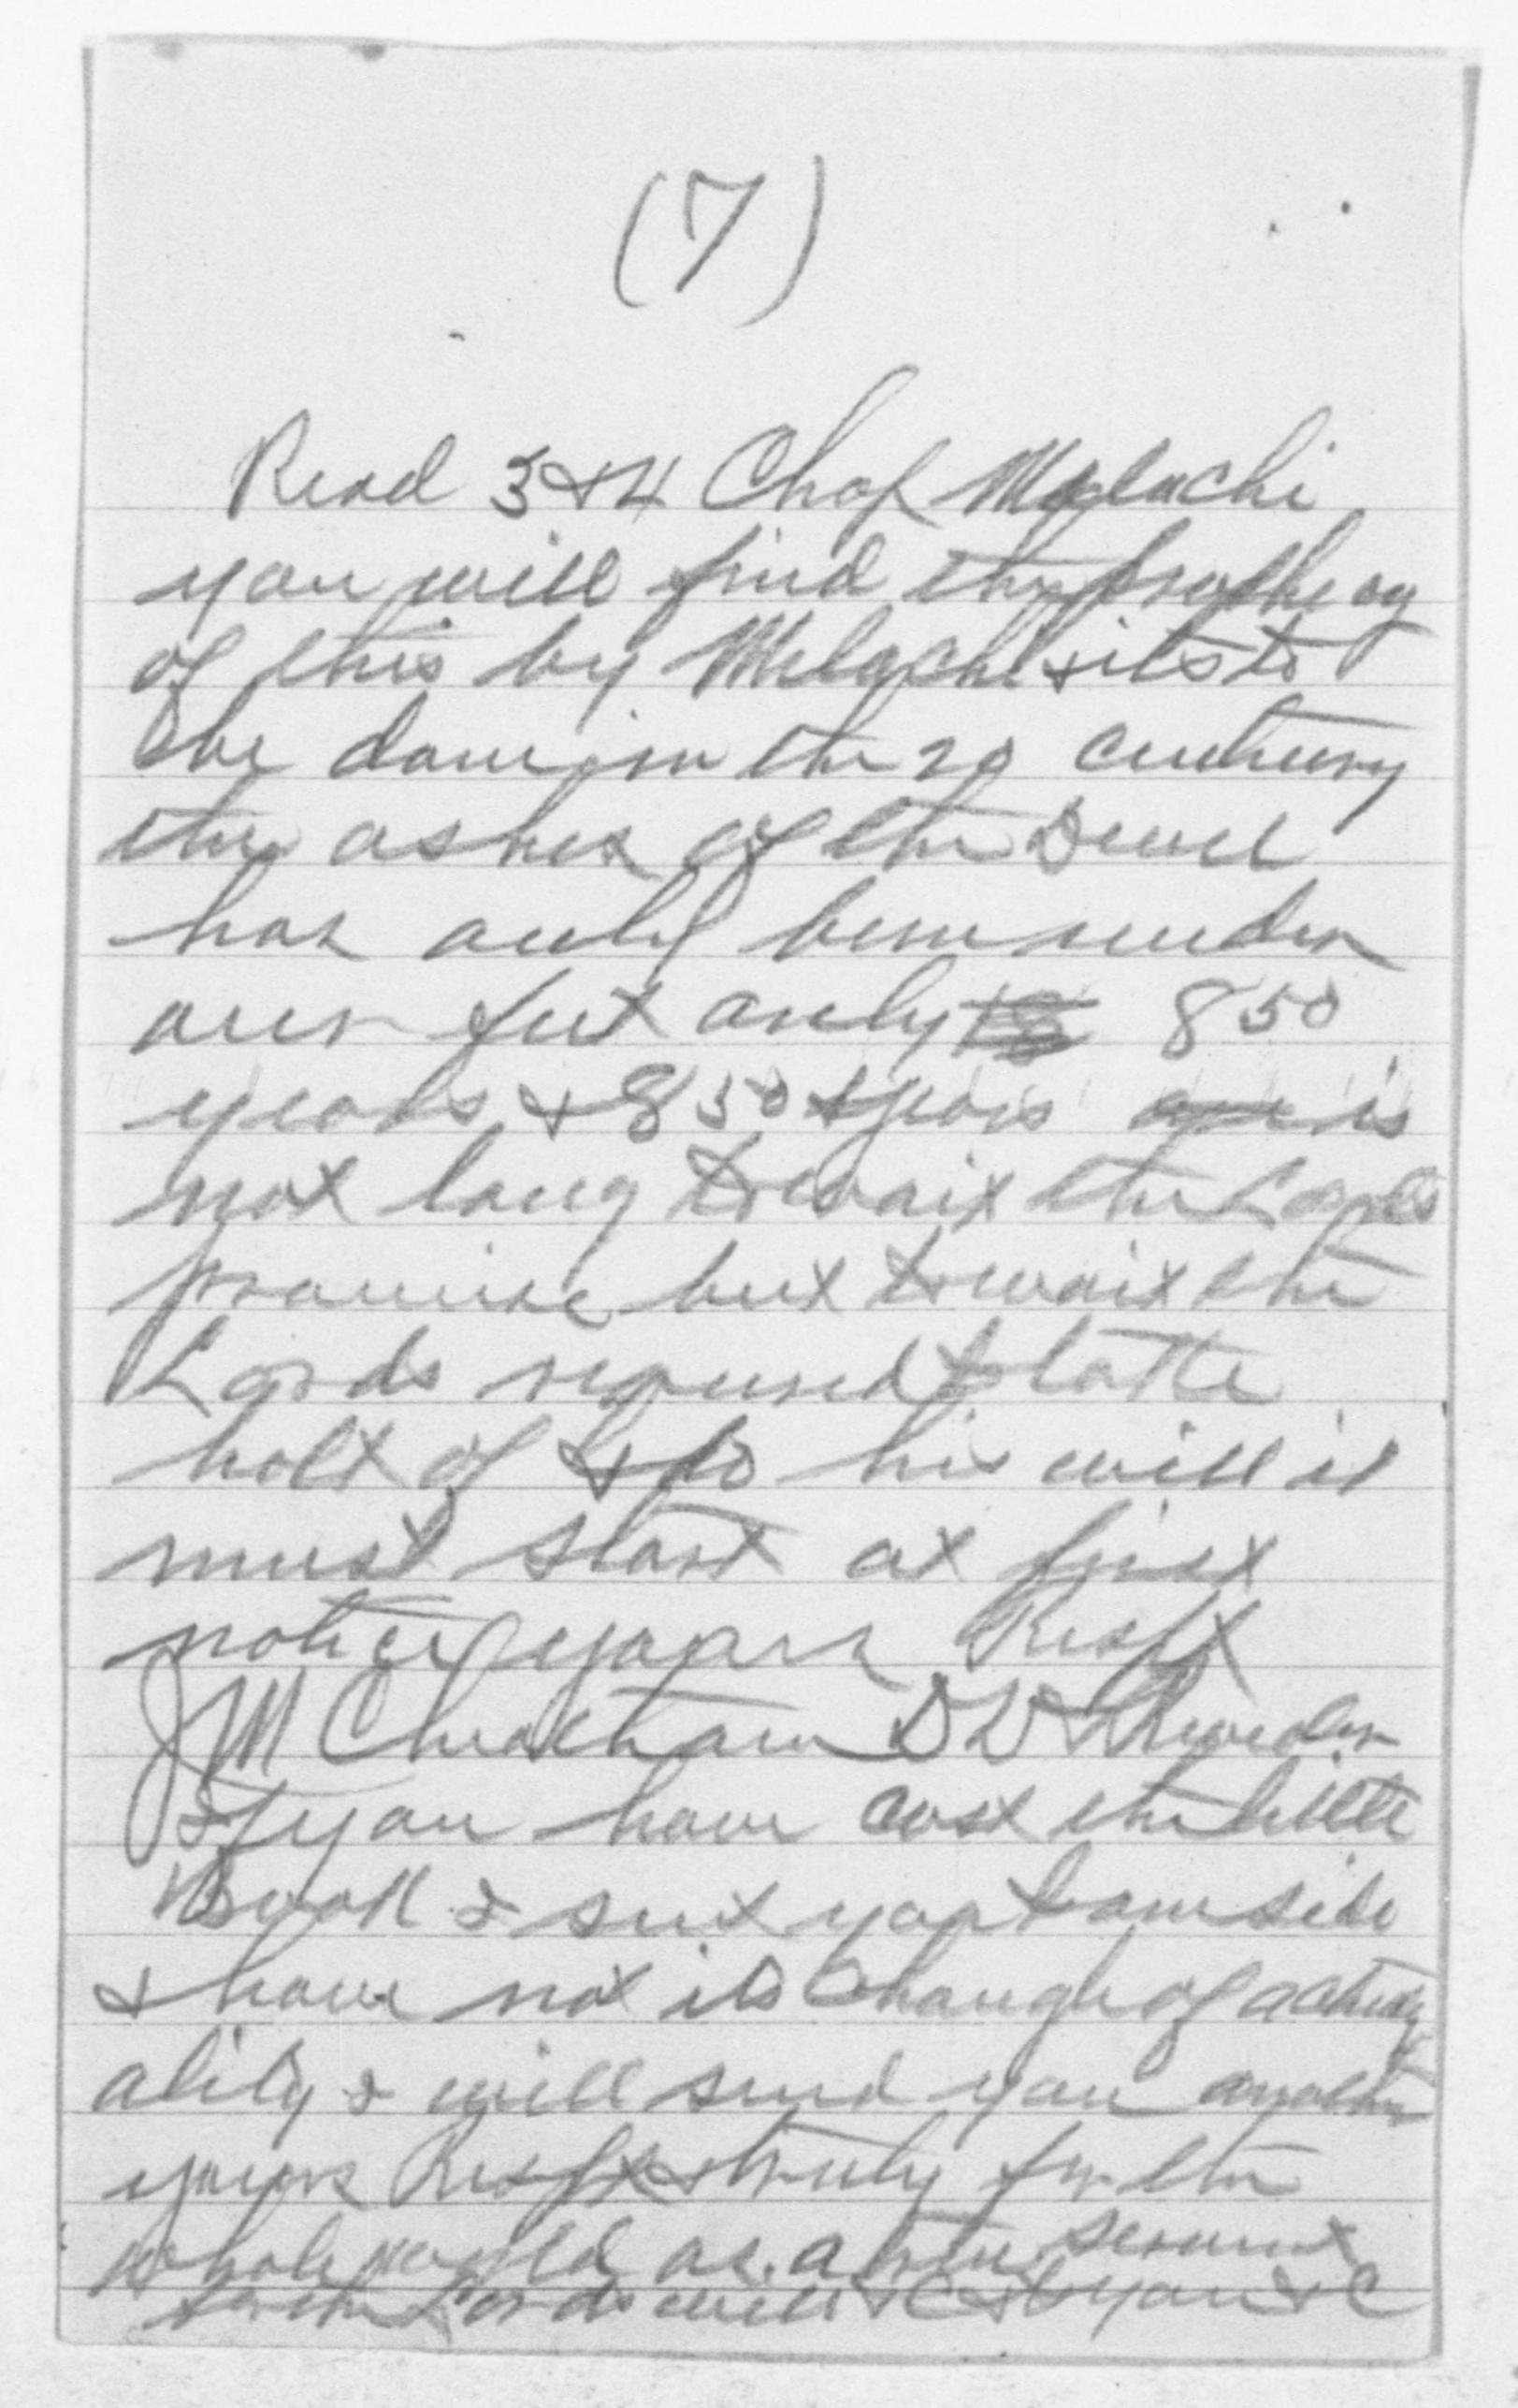 (7)
Read 3 & 4 Chap Malachi
you will find the prophecy
of this by Melachi & its to
be done in the 20 century
the ashes of the Devel
has only bene under
our feet only 850
years & 850 years is
not long to wait the Lords
promise but to wait the
Lords request to take
holt of & do his will it
must start at first
notice yours Respt
JM Cheatham D W
If you have cost the little
Book & sent you some side
& have not its change of
ality & will send you another
yours Respt & truly for the
whole world as a true servant
for the Lords will & C to you & C